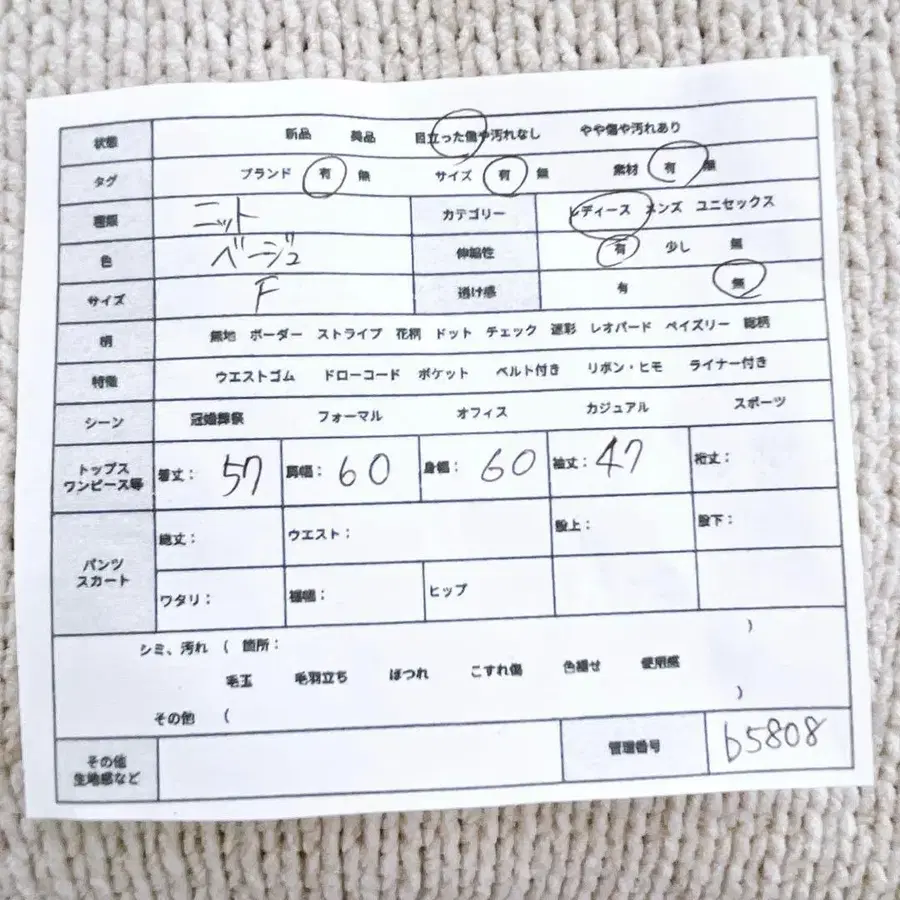 状態 新品 美品 目立った傷や汚れなし やや傷や汚れあり
タグ ブランド 有 無 サイズ 有 無 素材 有 無
種類 ニット カテゴリー レディース メンズ ユニセックス
色 ベージュ 伸縮性 有 少し 無
サイズ F 透け感 有 無
柄 無地 ボーダー ストライプ 花柄 ドット チェック 迷彩 レオパード ペイズリー 総柄
特徴 ウエストゴム ドローコード ポケット ベルト付き リボン・ヒモ ライナー付き
シーン 冠婚葬祭 フォーマル オフィス カジュアル スポーツ
トップス
ワンピース等 着丈: 57 肩幅: 60 身幅: 60 袖丈: 47 裄丈:
パンツ
スカート 総丈: ウエスト: 股上: 股下:
ワタリ: 裾幅: ヒップ
シミ、汚れ ( 箇所: )
毛玉 毛羽立ち ほつれ こすれ傷 色褪せ 使用感
その他 ( )
その他
生地感など 管理番号 b5808